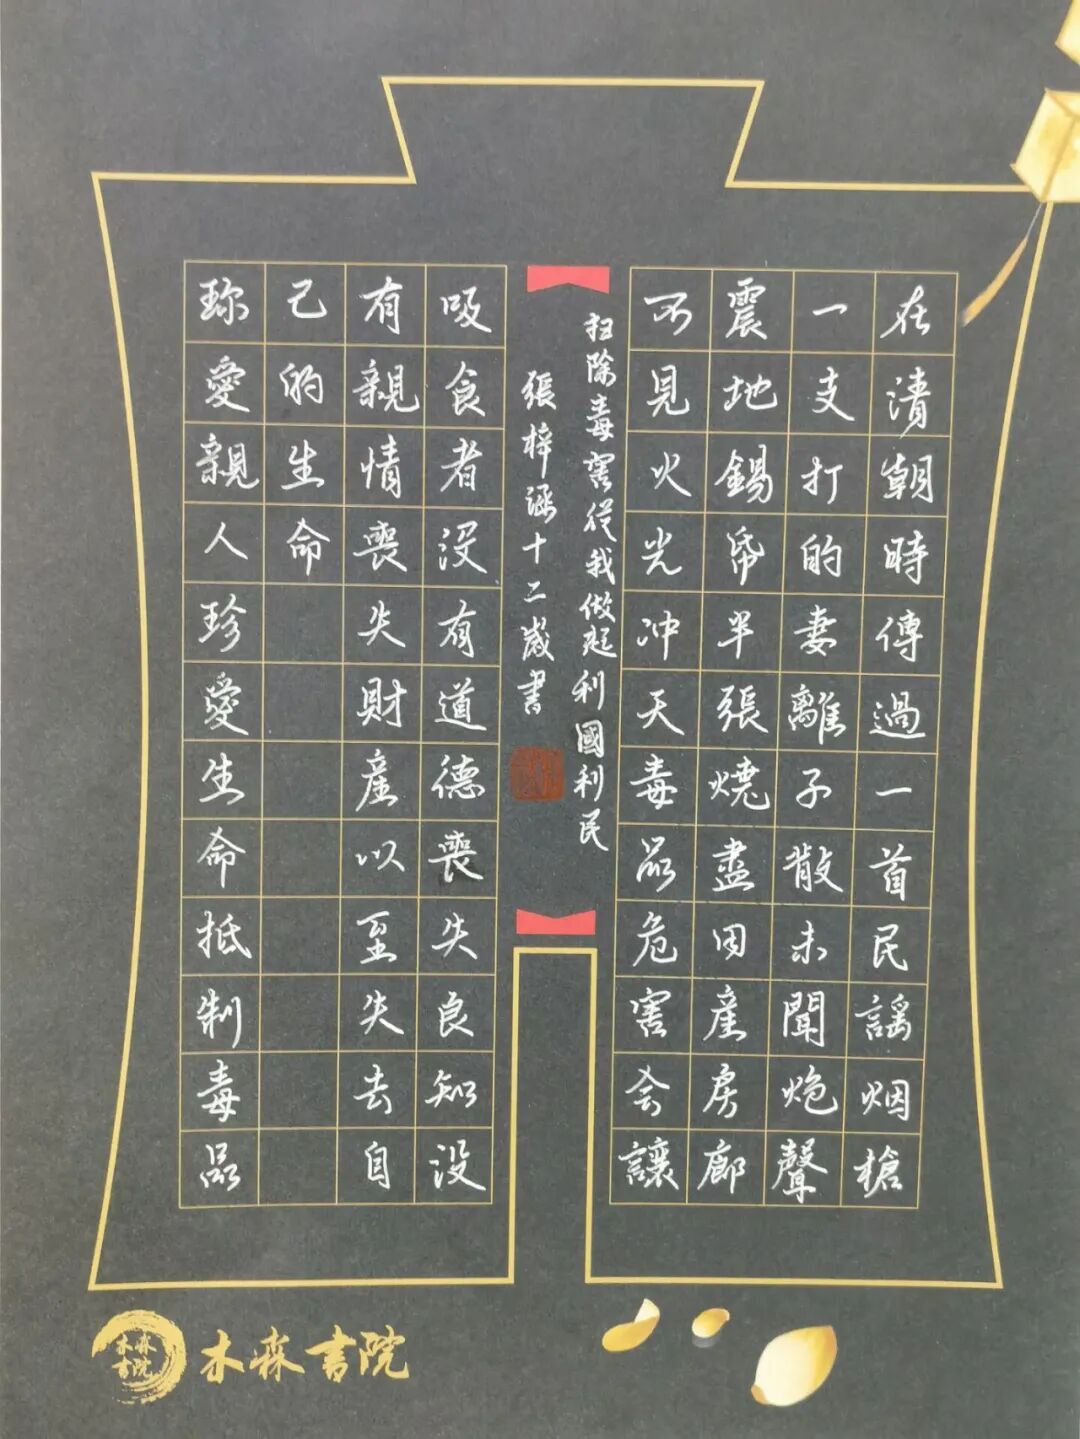 在清朝時傳過一首民謠烟槍
一支打的妻離子散未聞炮聲
震地錫帋半張燒盡田産房廊
不見火光冲天毒品危害会讓
扫除毒害従我做起利國利民
張梓涵十二歲書
吸食者没有道德喪失良知没
有親情喪失財産以至失去自
己的生命
珎愛親人珍愛生命抵制毒品
木森書院
木森書院